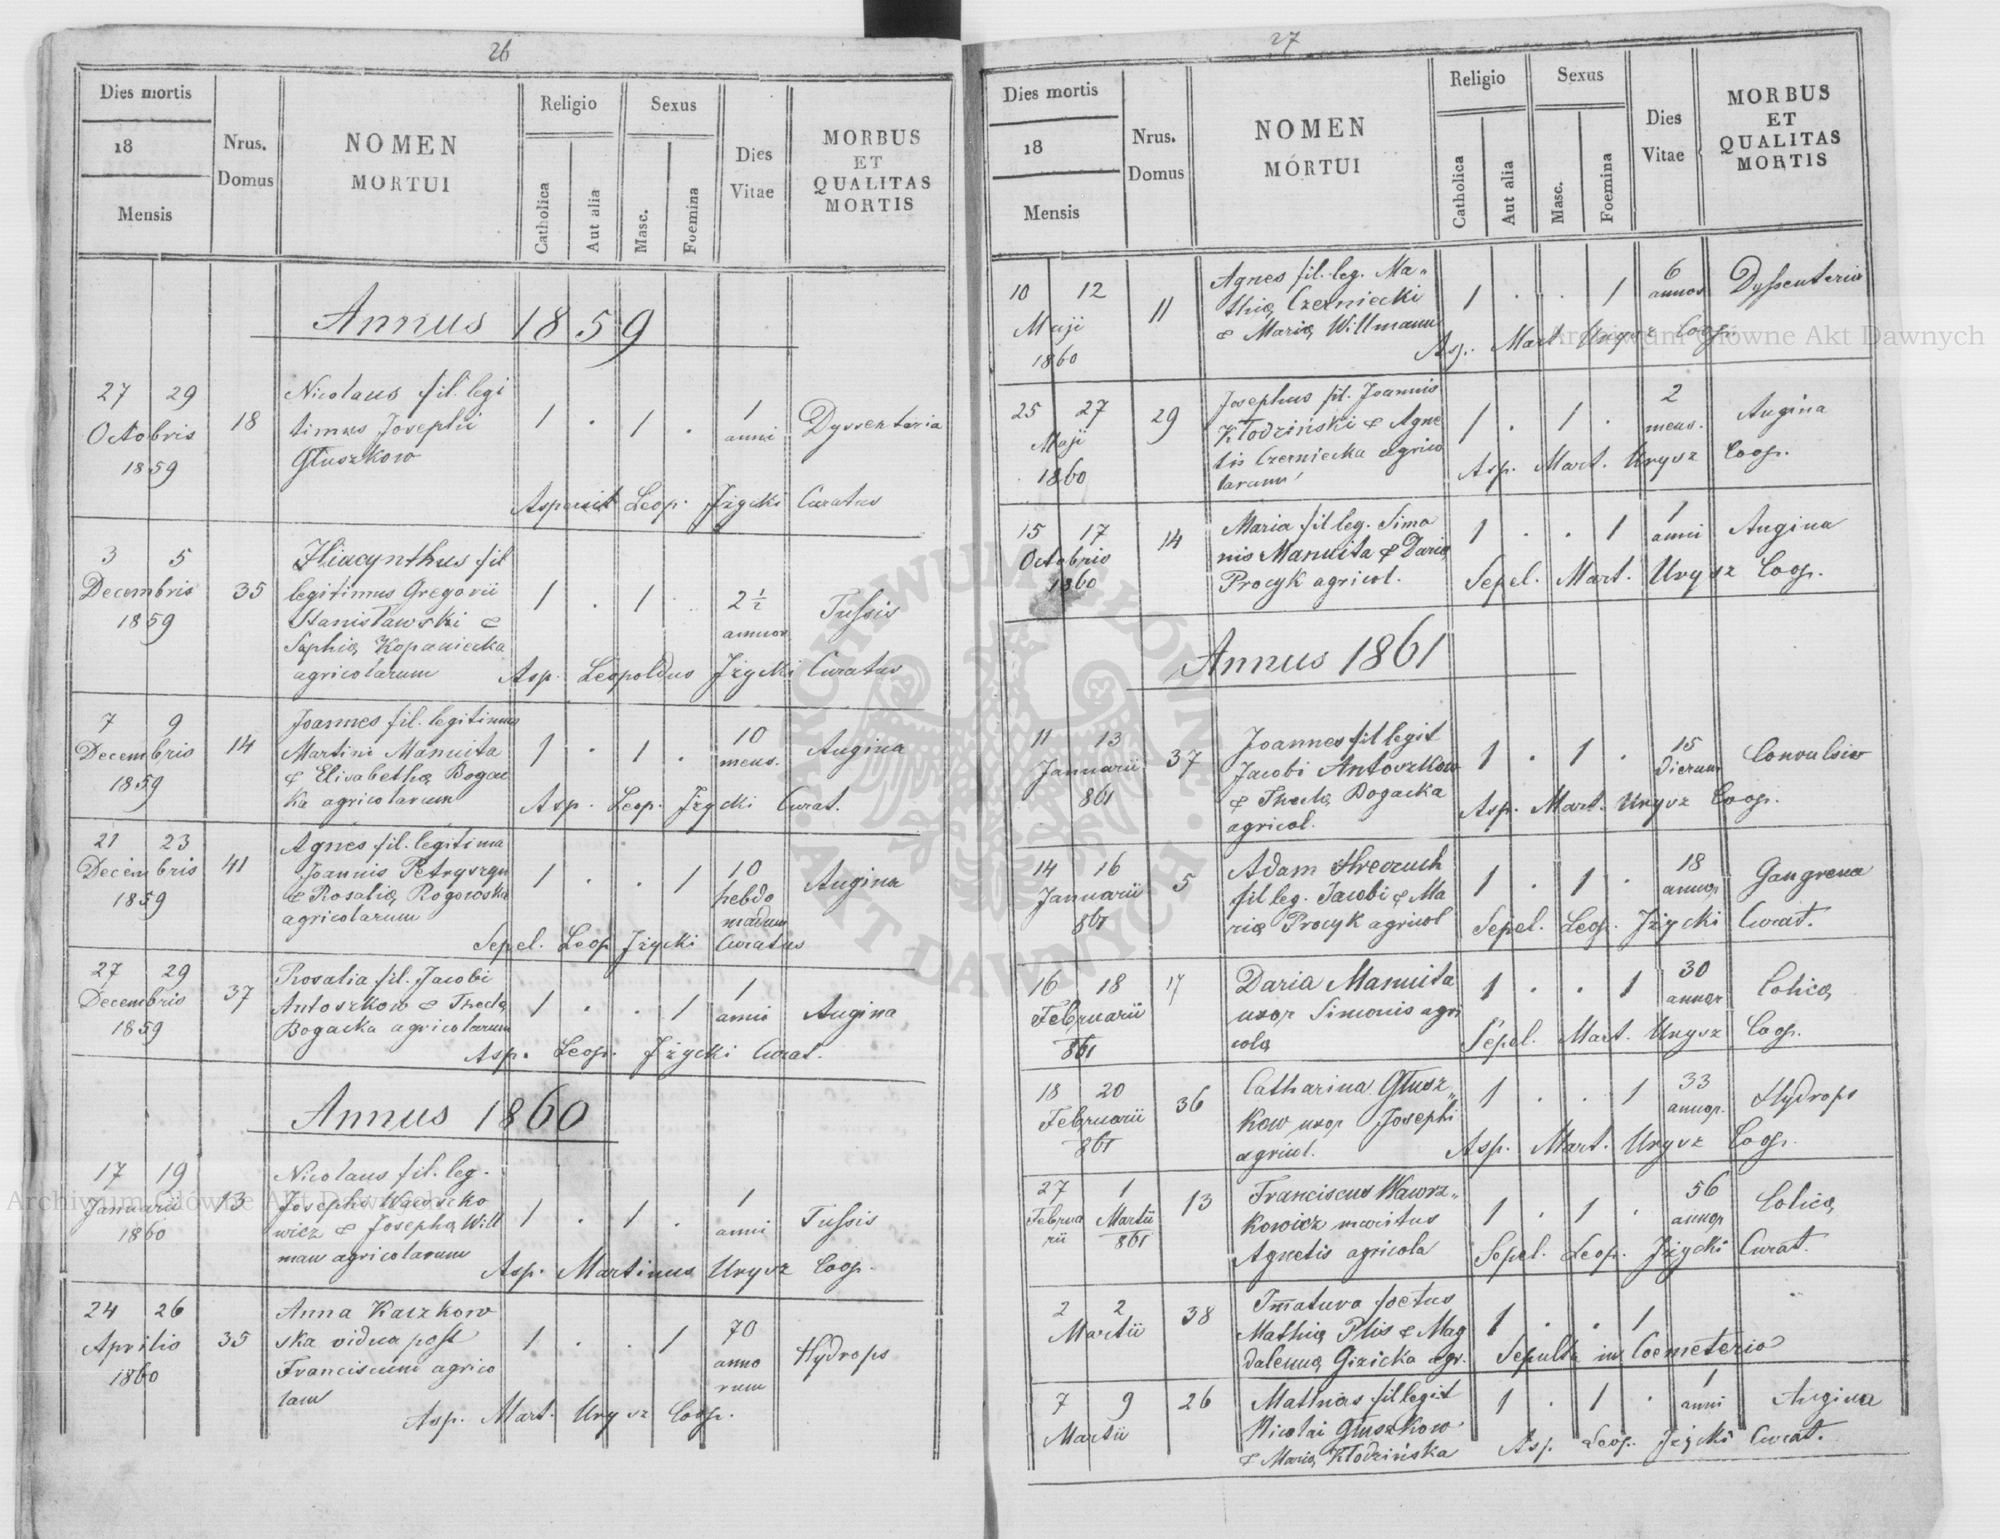 26
Dies mortis
18
Mensis
Nrus.
Domus
NOMEN
MORTUI
Religio
Catholica
Aut alia
Sexus
Masc.
Foemina
Dies
Vitae
MORBUS
ET
QUALITAS
MORTIS
Annus 1859
27 29
Octobris
1859
18
Nicolaus fil. legi
timus Josephi
Głuszkow
1 . 1 .
1
anni
Dyssenteria
Aspersit Leop. Jżycki Curatus
3 5
Decembris
1859
35
Hiacynthus fil
legitimus Gregorii
Stanisławski &
Sophią Kopaniecka
agricolarum
1 . 1
2 1/2
annor
Tussis
Asp. Leopoldus Jżycki Curatus
7 9
Decembris
1859
14
Joannes fil. legitimus
Martini Manuita
& Elisabethą Bogac
ka agricolarum
1 . 1 .
10
mens.
Angina
Asp. Leop. Jżycki Curat.
21 23
Decembris
1859
41
Agnes fil. legitima
Joannis Petryszyn
& Rosalią Rogowska
agricolarum
1 . . 1
10
hebdo
madum
Angina
Sepel. Leop Jżycki Curatus
27 29
Decembris
1859
37
Rosalia fil. Jacobi
Antoszkow & Theclą
Bogacka agricolarum
1 . . 1
1
anni
Angina
Asp. Leop. Jżycki Curat.
Annus 1860
17 19
Januarii
1860
13
Nicolaus fil. leg.
Josephi Wawrzko
wicz & Josephą Will
man agricolarum
1 . 1 .
1
anni
Tussis
Asp. Martinus Urysz Coop.
24 26
Aprilis
1860
35
Anna Kaczkow
ska vidua post
Franciscum agrico
lam
1 . . 1
70
anno
rum
Hydrops
Asp. Mart. Urysz Coop.
27
Dies mortis
18
Mensis
Nrus.
Domus
NOMEN
MÓRTUI
Religio
Catholica
Aut alia
Sexus
Masc.
Foemina
Dies
Vitae
MORBUS
ET
QUALITAS
MORTIS
10 12
Maji
1860
11
Agnes fil. leg. Ma-
thią Czerniecki
& Marią Willmann
1 . . 1
6
annos
Dyssenteria
Asp. Mart Urysz Coop.
25 27
Maji
1860
29
Josephus fil. Joannis
Kłodziński & Agne
tis Czerniecka agrico
larum
1 . 1 .
2
mens.
Angina
Asp. Mart. Urysz Coop.
15 17
Octobris
1860
14
Maria fil leg. Simo
nis Manuita & Darią
Procyk agricol.
1 . . 1
1
anni
Angina
Sepel. Mart. Urysz Coop.
Annus 1861
11 13
Januarii
861
37
Joannes fil legit
Jacobi Antoszkow
& Theclą Bogacka
agricol.
1 . 1 .
15
dierum
Convulsio
Asp. Mart. Urysz Coop.
14 16
Januarii
861
5
Adam
fil leg. Jacobi & Ma
rią Procyk agricol
1 . 1 .
18
annor
Gangrena
Sepel. Leop. Jżycki Curat.
16 18
Februarii
861
17
Daria Manuita
uxor Simonis agri
colą
1 . . 1
30
annor
Colicą
Sepel. Mart. Urysz Coop.
18 20
Februarii
861
36
Catharina Głusz-
kow uxor Josephi
agricol.
1 . . 1
33
annor.
Hydrops
Asp. Mart. Urysz Coop.
27 1
Februa Martii
rii 861
13
Franciscus Wawrz-
kowicz maritus
Agnetis agricola
1 . 1 .
56
annor
Colicą
Sepel. Leop. Jżycki Curat.
2 2
Martii
38
Imatura foetus
Mathią Plis & Mag
daleną Gizicka agr.
1 . . 1
Sepulta in Coemeterio
7 9
Martii
26
Mathias fil legit
Nicolai Głuszkow
& Marią Kłodzińska
1 . 1 .
1
anni
Angina
Asp. Leop. Jżycki Curat.
Archiwum Główne Akt Dawnych
Archiwum Główne Akt Dawnych
ARCHIWUM GŁÓWNE
AKT DAWNYCH